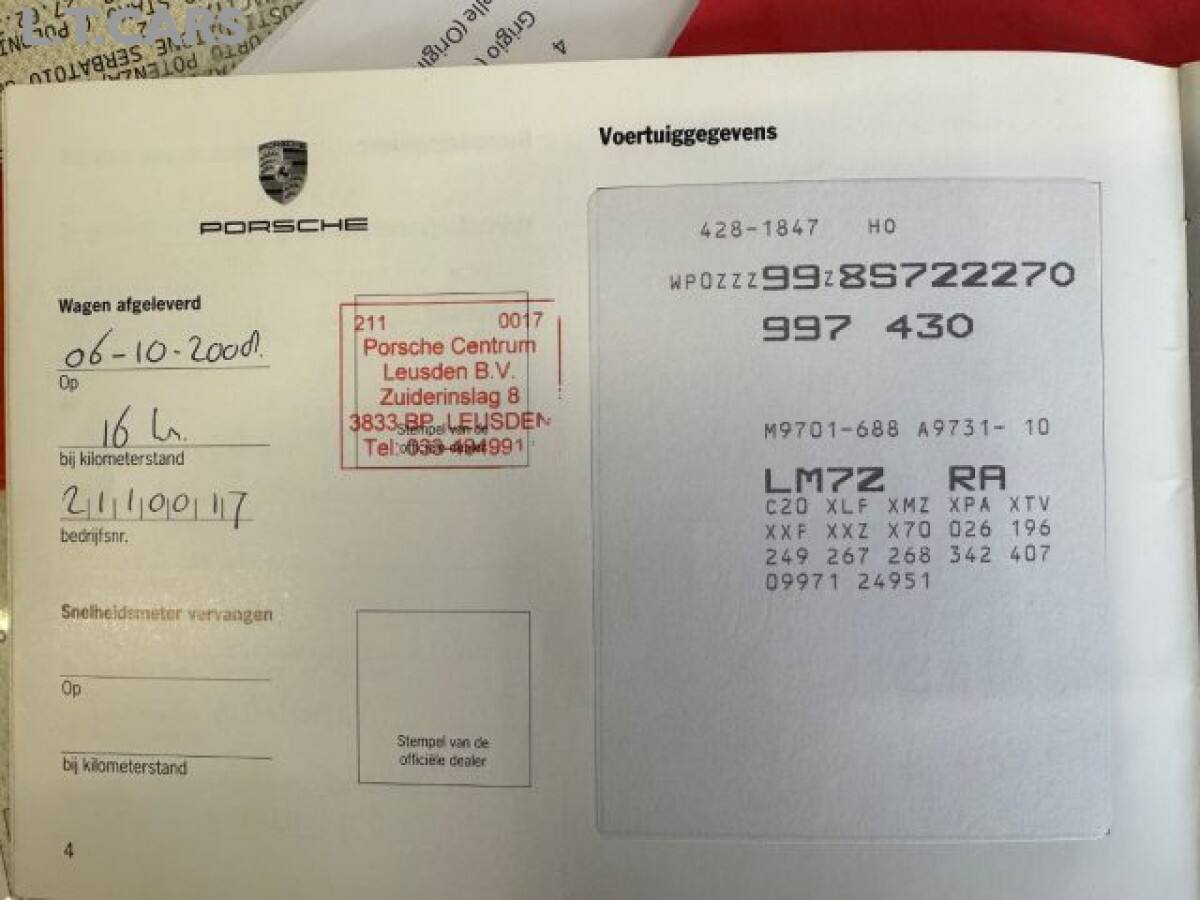 LT.CARS
PORSCHE
Wagen afgeleverd
06-10-2008.
Op
16 km.
bij kilometerstand
2110017
bedrijfsnr.
211 0017
Porsche Centrum
Leusden B.V.
Zuiderinslag 8
3833 BP LEUSDEN
Tel: 033-494991
Stempel van de
officiële dealer
Snelheidsmeter vervangen
Op
bij kilometerstand
Stempel van de
officiële dealer
4
Voertuiggegevens
428-1847 HO
WP0ZZZ99Z8S722270
997 430
M9701-688 A9731- 10
LM7Z RA
C20 XLF XMZ XPA XTV
XXF XXZ X70 026 196
249 267 268 342 407
09971 24951
Grigio (
4
elle (Origi
SERBATOIO
POTENZA